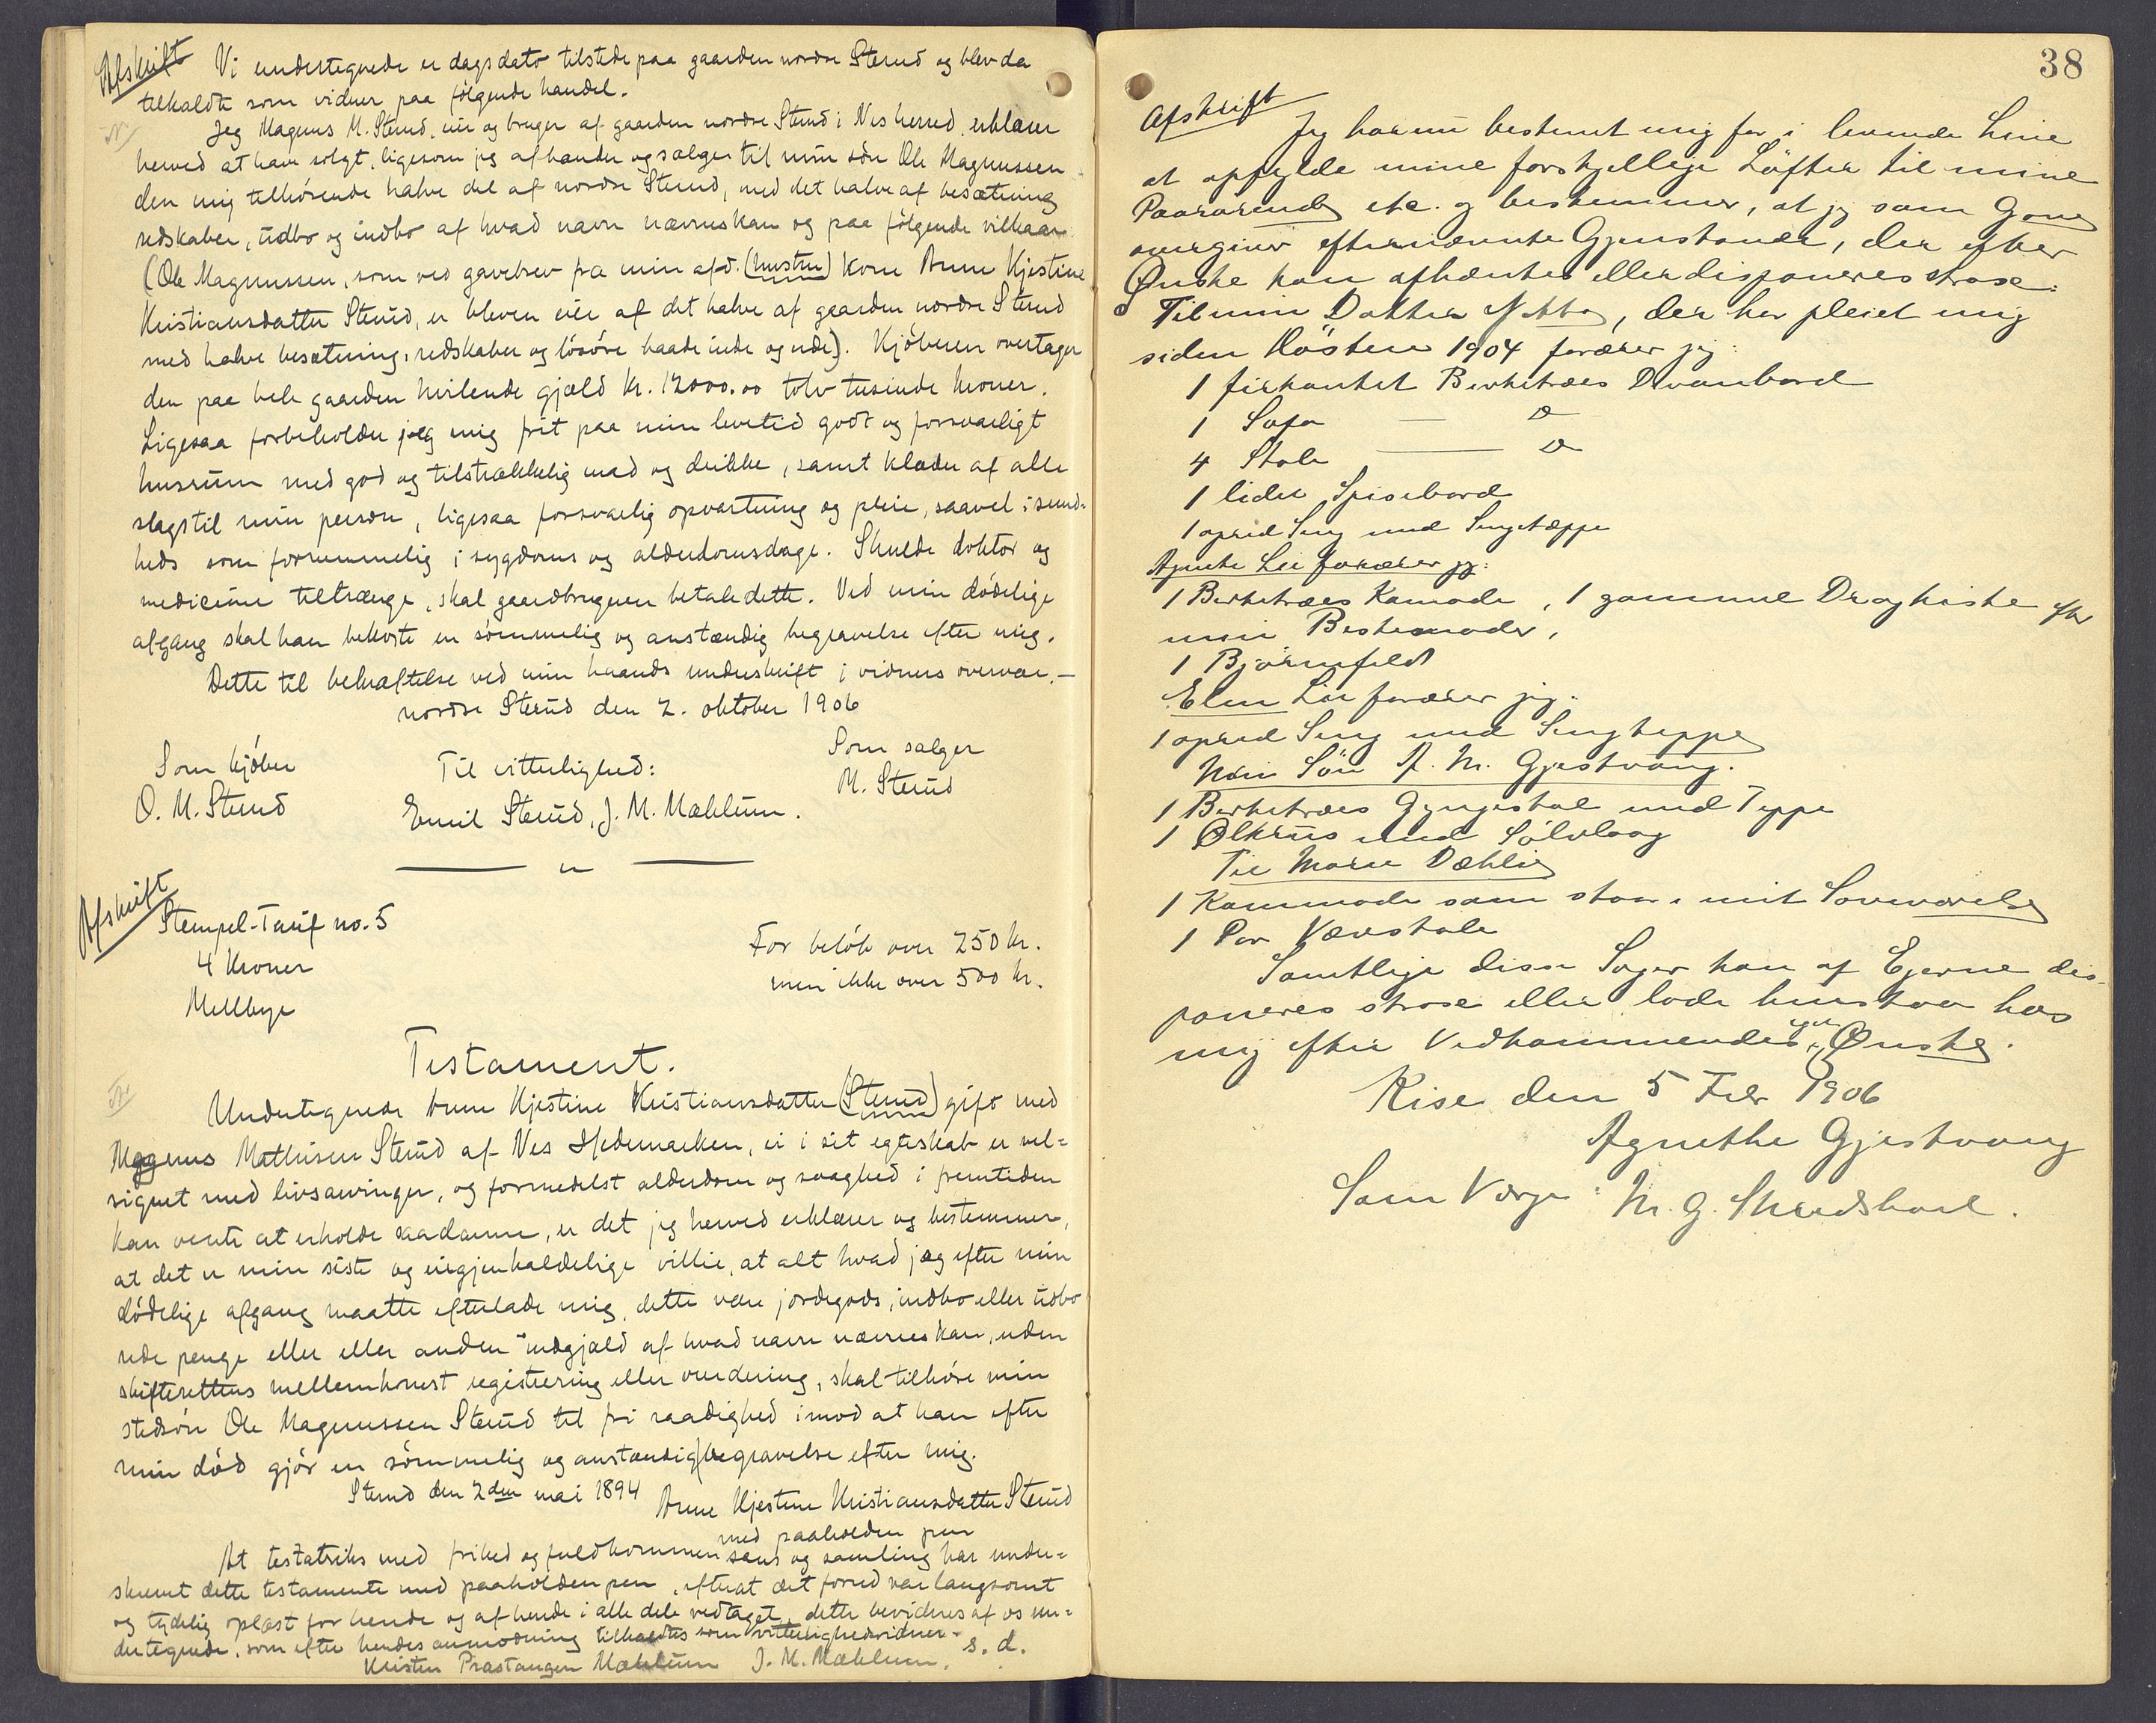 Afskrift Vi undertegnede er dags dato tilstede paa gaarden nordre Sterud og blev da
tilkaldte som vidner paa følgende handel.
Jeg Magnus M. Sterud, eier og bruger af gaarden nordre Sterud i Nes herred, erklærer
herved at have solgt, ligesom jeg afhænder og sælger til min søn Ole Magnussen
den mig tilhørende halve del af nordre Sterud, med det halve af besætning
redskaber, udbo og indbo af hvad navn nævnes kan og paa følgende vilkaar
(Ole Magnussen, som ved gavebrev fra min afd. (hustru) kone Anne Kjestine
Kristiansdatter Sterud, er bleven eier af det halve af gaarden nordre Sterud
med halve besætning, redskaber og løsøre baade inde og ude). Kjøberen overtager
den paa hele gaarden hvilende gjæld kr. 12000.00 tolv tusinde kroner.
Ligesaa forbeholder jeg mig frit paa min levetid godt og forsvarligt
husrum med god og tilstrækkelig mad og drikke, samt klæder af alle
slags til min person, ligesaa forsvarlig opvartning og pleie, saavel i sund=
heds som fornemmelig i sygdoms og alderdomsdage. Skulde doktor og
medicine tiltrænge, skal gaardbrugeren betale dette. Ved min dødelige
afgang skal han bekoste en sømmelig og anstændig begravelse efter mig.
Dette til bekræftelse ved min haands underskrift i vidners overvær.—
nordre Sterud den 2. oktober 1906
Som kjøber Til vitterlighed: Som sælger
O. M. Sterud Emil Sterud, J. M. Mæhlum. M. Sterud
Afskrift
Stempel-Tarif no. 5
4 Kroner For beløb over 250 kr.
Mellbye men ikke over 500 kr.
Testament.
Undertegnede Anne Kjestine Kristiansdatter (Sterud) gift med
Magnus Mathisen Sterud af Nes Hedemarken, ei i sit egteskab er vel=
signet med livsarvinger, og formedelst alderdom og svaghed i fremtiden
kan vente at erholde saadanne, er det jeg herved erklærer og bestemmer,
at det er min siste og uigjenkaldelige villie, at alt hvad jeg efter min
dødelige afgang maatte efterlade mig, dette være jordegods, indbo eller udbo
rede penge eller eller anden indgjæld af hvad navn nævnes kan, uden
skifterettens mellemkomst registrering eller vurdering, skal tilhøre min
stedsøn Ole Magnussen Sterud til fri raadighed imod at han efter
min død gjør en sømmelig og anstændig begravelse efter mig.
Sterud den 2den mai 1894 Anne Kjestine Kristiansdatter Sterud
med paaholden pen
At testatriks med frihed og fuldkommen sans og samling har under=
skrevet dette testamente med paaholden pen, efterat det forud var langsomt
og tydelig oplæst for hende og af hende i alle dele vedtaget, dette bevidnes af os un=
dertegnede, som efter hendes anmodning tilkaldtes som vitterlighedsvidner. s. d.
Kristen Præstangen Mæhlum J. M. Mæhlum.
38
Afskrift
Jeg har nu bestemt mig for i levende Live
at opfylde mine forskjellige Løfter til mine
Paarørende etc. og bestemmer, at jeg som Gave
overgiver efternævnte Gjenstande, der efter
Ønske kan afhentes eller disponeres strax:
Til min Datter, der har pleiet mig
siden Høsten 1904 forærer jeg:
1 firkantet Birketræes Divanbord
1 Sofa — D
4 Stole — D
1 lidet Spisebord
1 opred Seng med Sengetæppe
Agnete Lie forærer jeg:
1 Birketræes Komode, 1 gammel Dragkiste efter
min Bestemoder,
1 Bjørnefeld
Elen Lie forærer jeg:
1 opred Seng med Sengteppe
Min Søn A. M. Gjestvang.
1 Birketræes Gyngestol med Teppe
1 Ølkrus med Sølvlaag
Til Marie Dæhlie
1 Kommode som staar i mit Soveværelse
1 Par Vævstole
Samtlige disse Sager kan af Ejerne dis-
poneres strax eller lade henstaa hos
mig efter Vedkommendes eget Ønske.
Kise den 5 Febr 1906
Agnethe Gjestvang
Som Værge: M. G. Skredshorl.